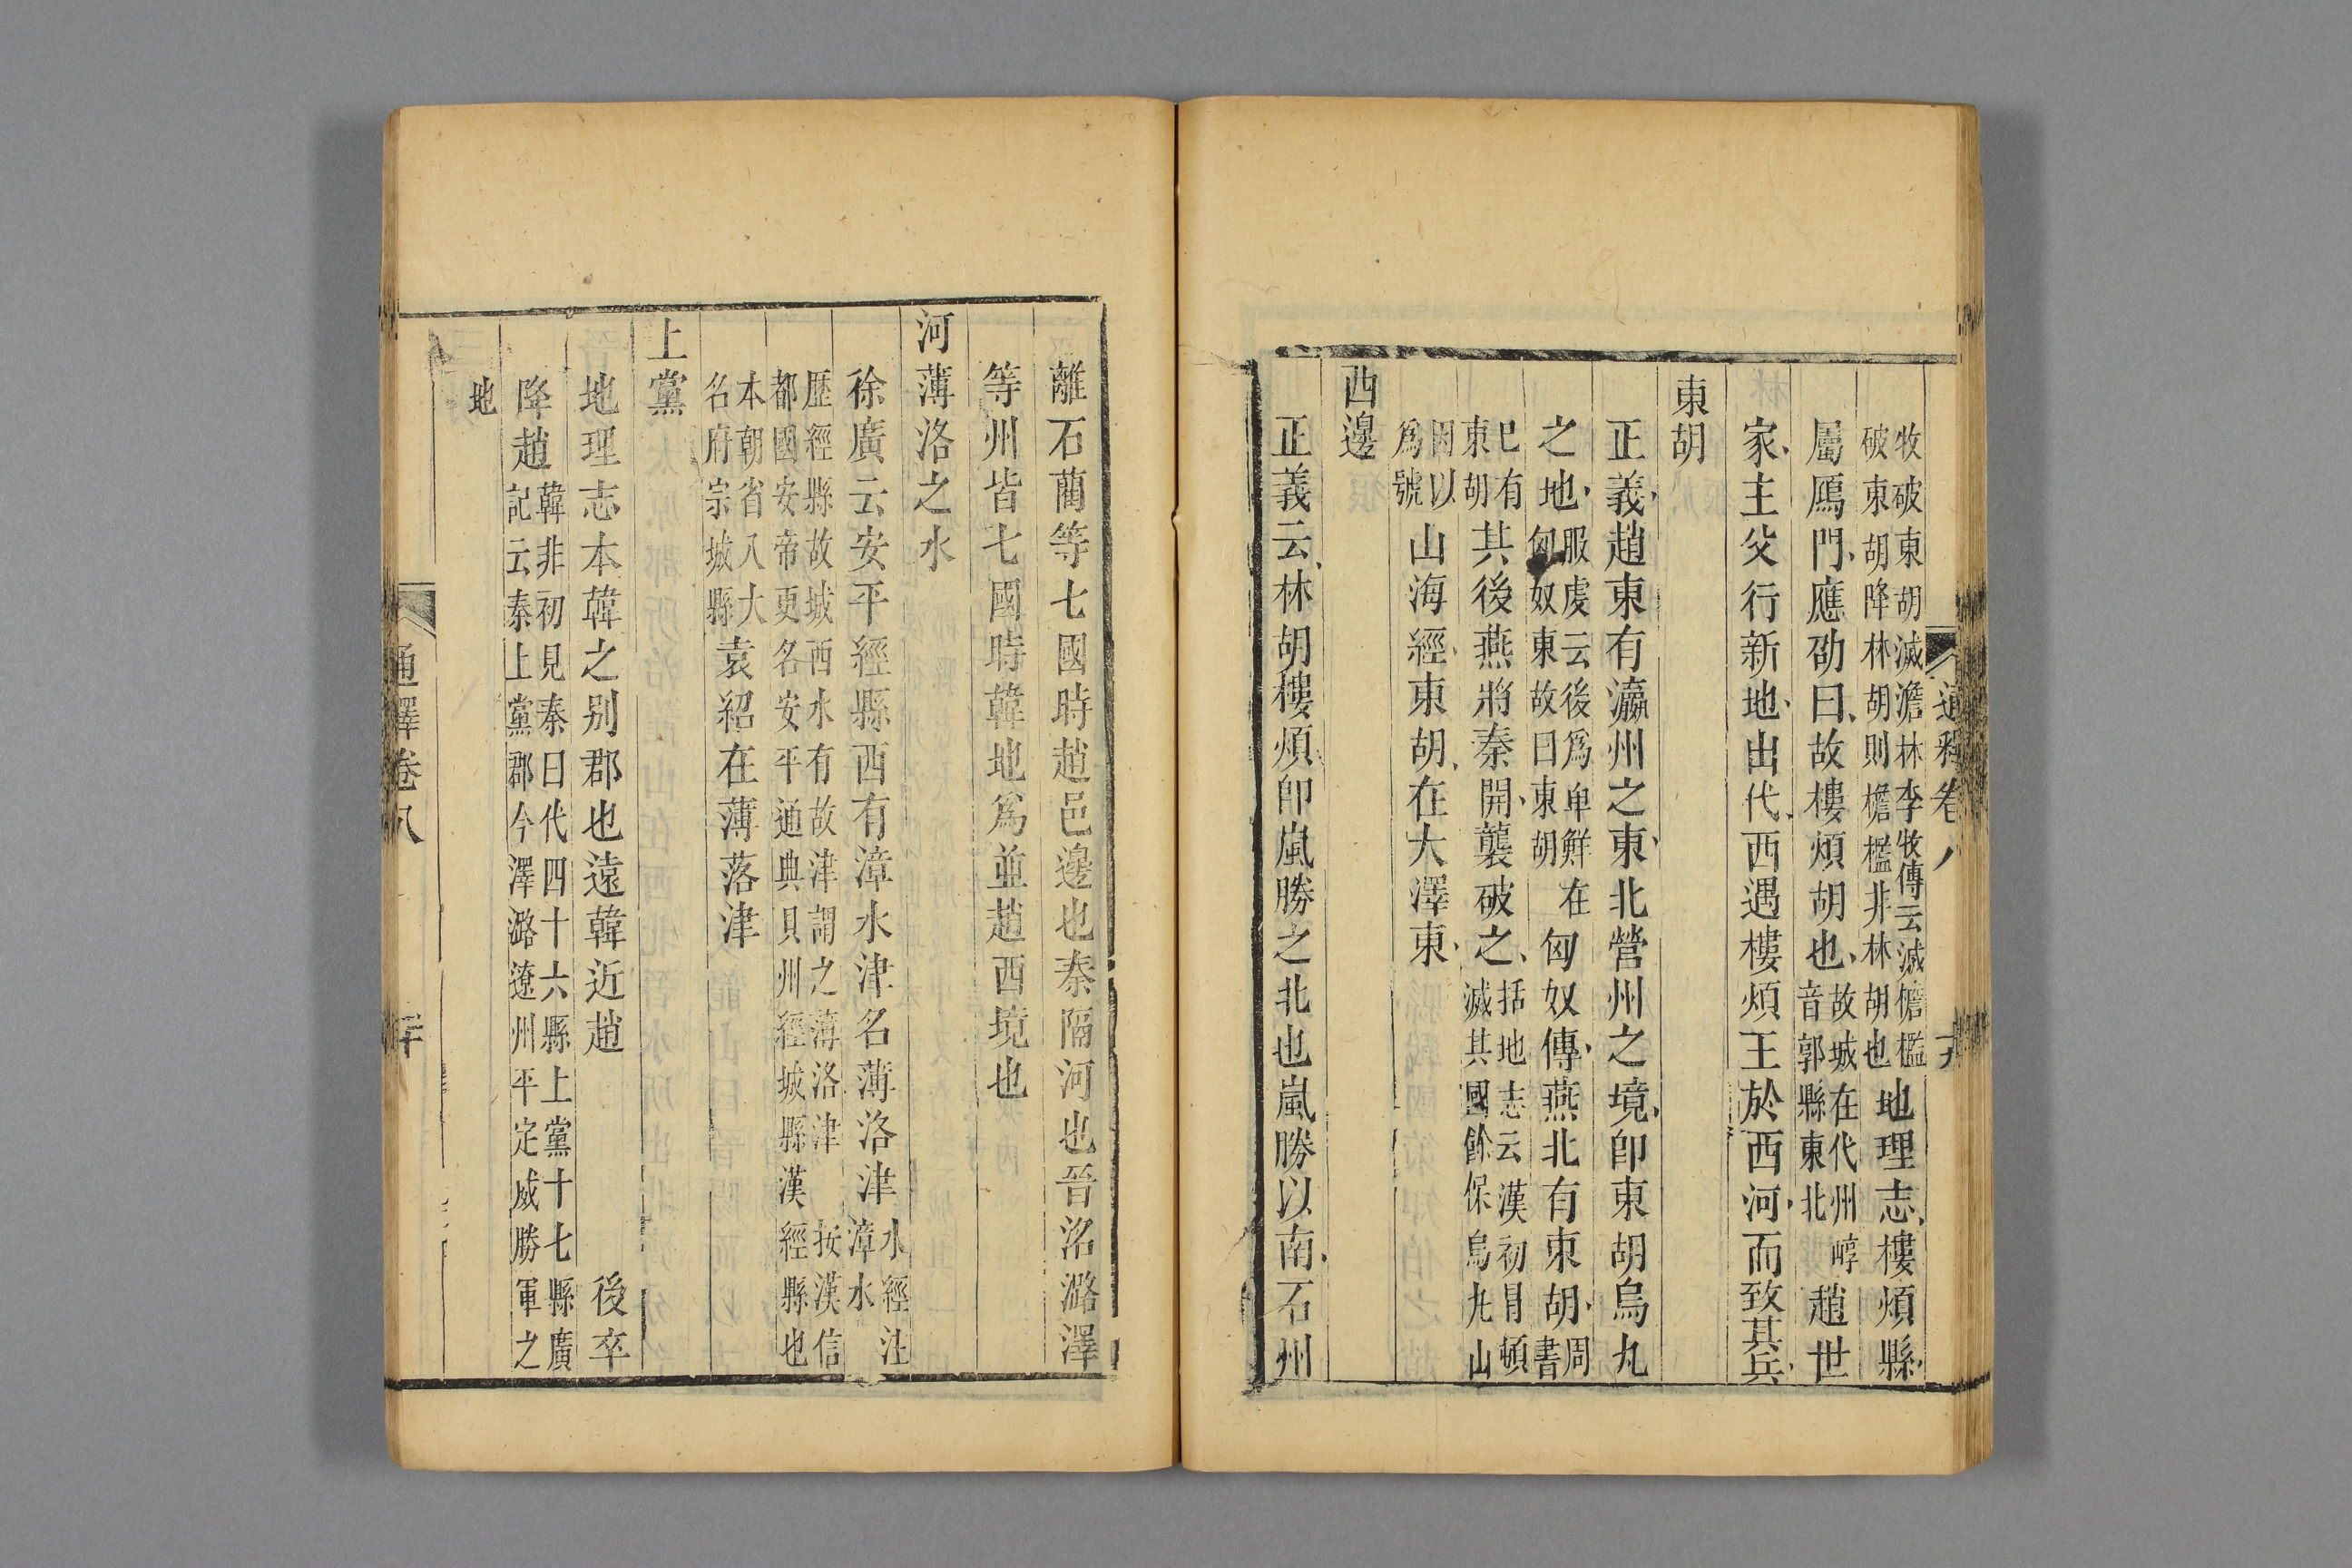 通釋卷八
牧破東胡滅澹林李牧傳云滅儋檻
破東胡降林胡則檐檻非林胡也
地理志樓煩縣
屬鴈門應劭曰故樓煩胡也
故城在代州崞
音郭縣東北
趙世
家主父行新地出代西遇樓煩王於西河而致其兵
東胡
正義趙東有瀛州之東北營州之境卽東胡烏丸
之地
服虔云後爲鮮卑
匈奴東故曰東胡
在匈奴傳燕北有東胡
周
書
已有
東胡
其後燕將秦開襲破之
括地志云漢初冒頓
滅其國餘保烏丸山
因以
爲號
山海經東胡在大澤東
西邊
正義云林胡樓煩卽嵐勝之北也嵐勝以南石州
離石藺等七國時趙邑邊也秦隔河也晉洺潞澤
等州皆七國時韓地爲並趙西境也
河薄洛之水
徐廣云安平經縣西有漳水津名薄洛津
水經注
漳水
歷經縣故城西水有故津謂之薄洛津 按漢信
都國安帝更名安平通典貝州經城縣漢經縣也
本朝省入大
名府宗城縣
袁紹在薄落津
上黨
地理志本韓之別郡也遠韓近趙 後卒
降趙
韓非初見秦曰代四十六縣上黨十七縣廣
記云秦上黨郡今澤潞遼州平定威勝軍之
地
通釋卷八